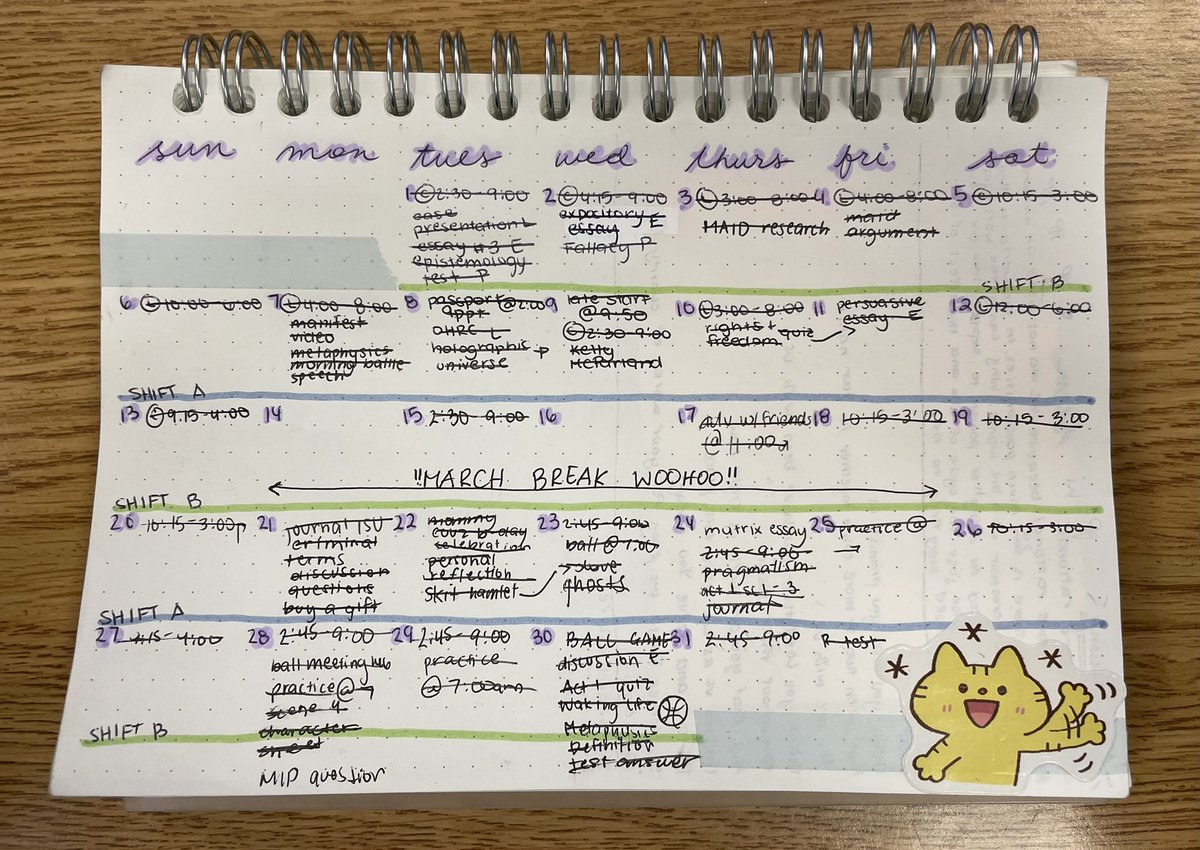 sun mon tues wed thurs fri sat
1 © 2:30-9:00
case
presentation L
essay #3 E
epistemology
test P
2 © 4:15-9:00
expository E
essay
Fallacy P
3 3:00-8:00
MAID research
4 4:00-8:00
maid
argument
5 © 10:15-3:00
SHIFT B
6 10:00-6:00
7 4:00-8:00
manifest
video
metaphysics
morning battle
speech
8 passport @2:00
appt
OHRC L
holographic P
universe
9 late start
@ 9:50
© 2:30-9:00
Kelly
McParland
10 3:00-8:00
rights + quiz
freedom
11 persuasive
essay E
12 © 12:00-6:00
SHIFT A
13 9:15-4:00
14
15 2:30-9:00
16
17 adv w/friends
@ 11:00
18 10:15-3:00
19 10:15-3:00
!!MARCH BREAK WOOHOO!!
SHIFT B
20 10:15-3:00p
21 journal ISU
criminal
terms
discussion
questions
buy a gift
22 mommy
b-day
celebration
personal
reflection
skit hamlet
23 2:45-9:00
ball @ 7:00
ghosts
24 matrix essay
2:45-9:00
pragmatism
act 1 sc 1-3
journal
25 practice @
26 10:15-3:00
SHIFT A
27 4:00
28 2:45-9:00
ball meeting hub
practice @ 7
scene 4
character
sheet
MIP question
29 2:45-9:00
practice
@ 7:00am
30 BALL GAME
discussion E
Act 1 quiz
Waking Life
Metaphysics
Definition
test answer
31 2:45-9:00
R test
SHIFT B